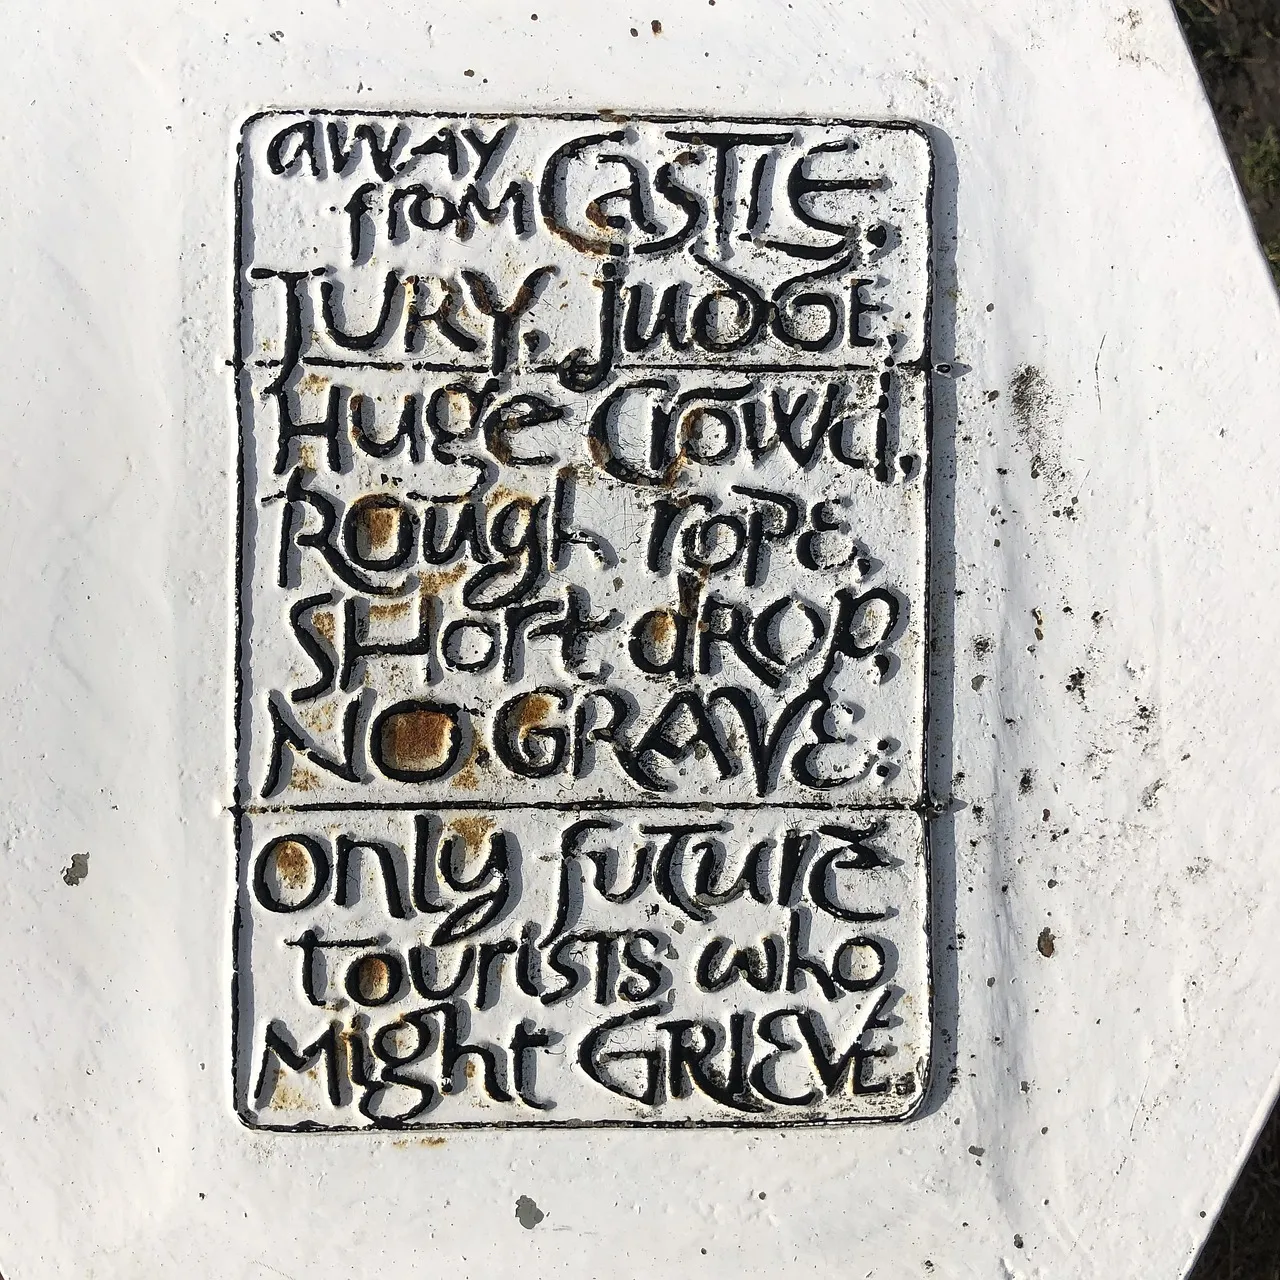 away
from Castle,
Jury, judge,
Huge Crowd,
Rough rope,
SHort dROp,
NO GRAVE:
only future
tourists who
Might GRIEVE